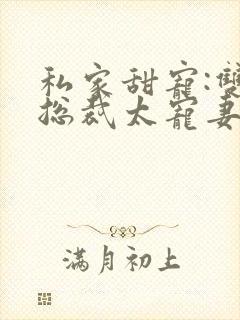 私家甜寵:雙
总裁太寵妻
滿月初上